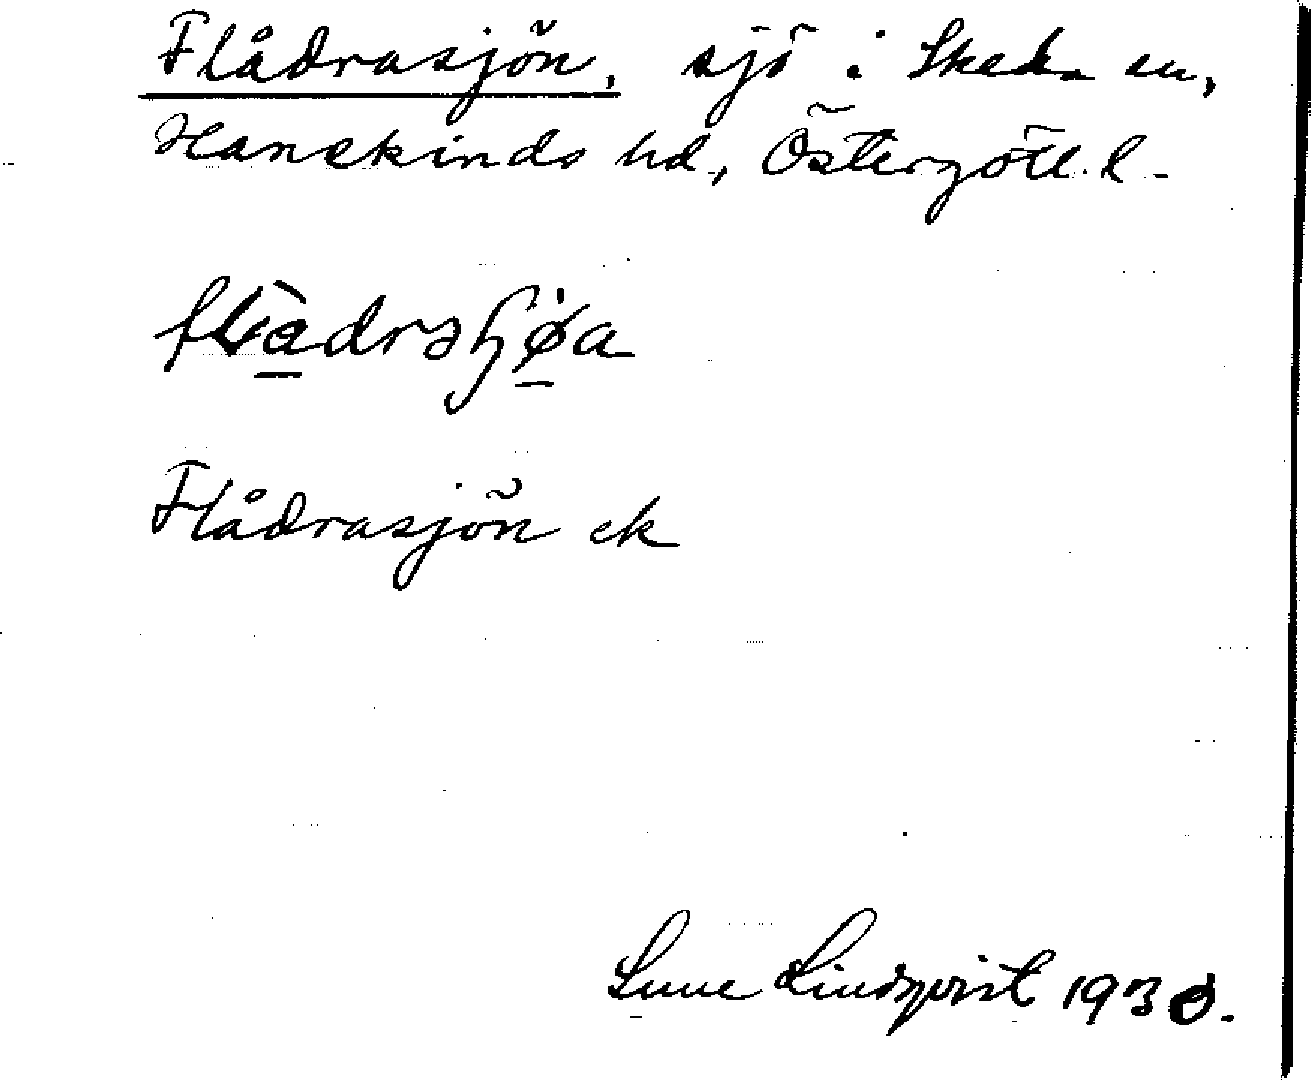 Flådrasjön, sjö i Skeda sn,
Hanekinds hd, Östergötl. l.
Flådrasjön ek
Sune Lindqvist 1930.